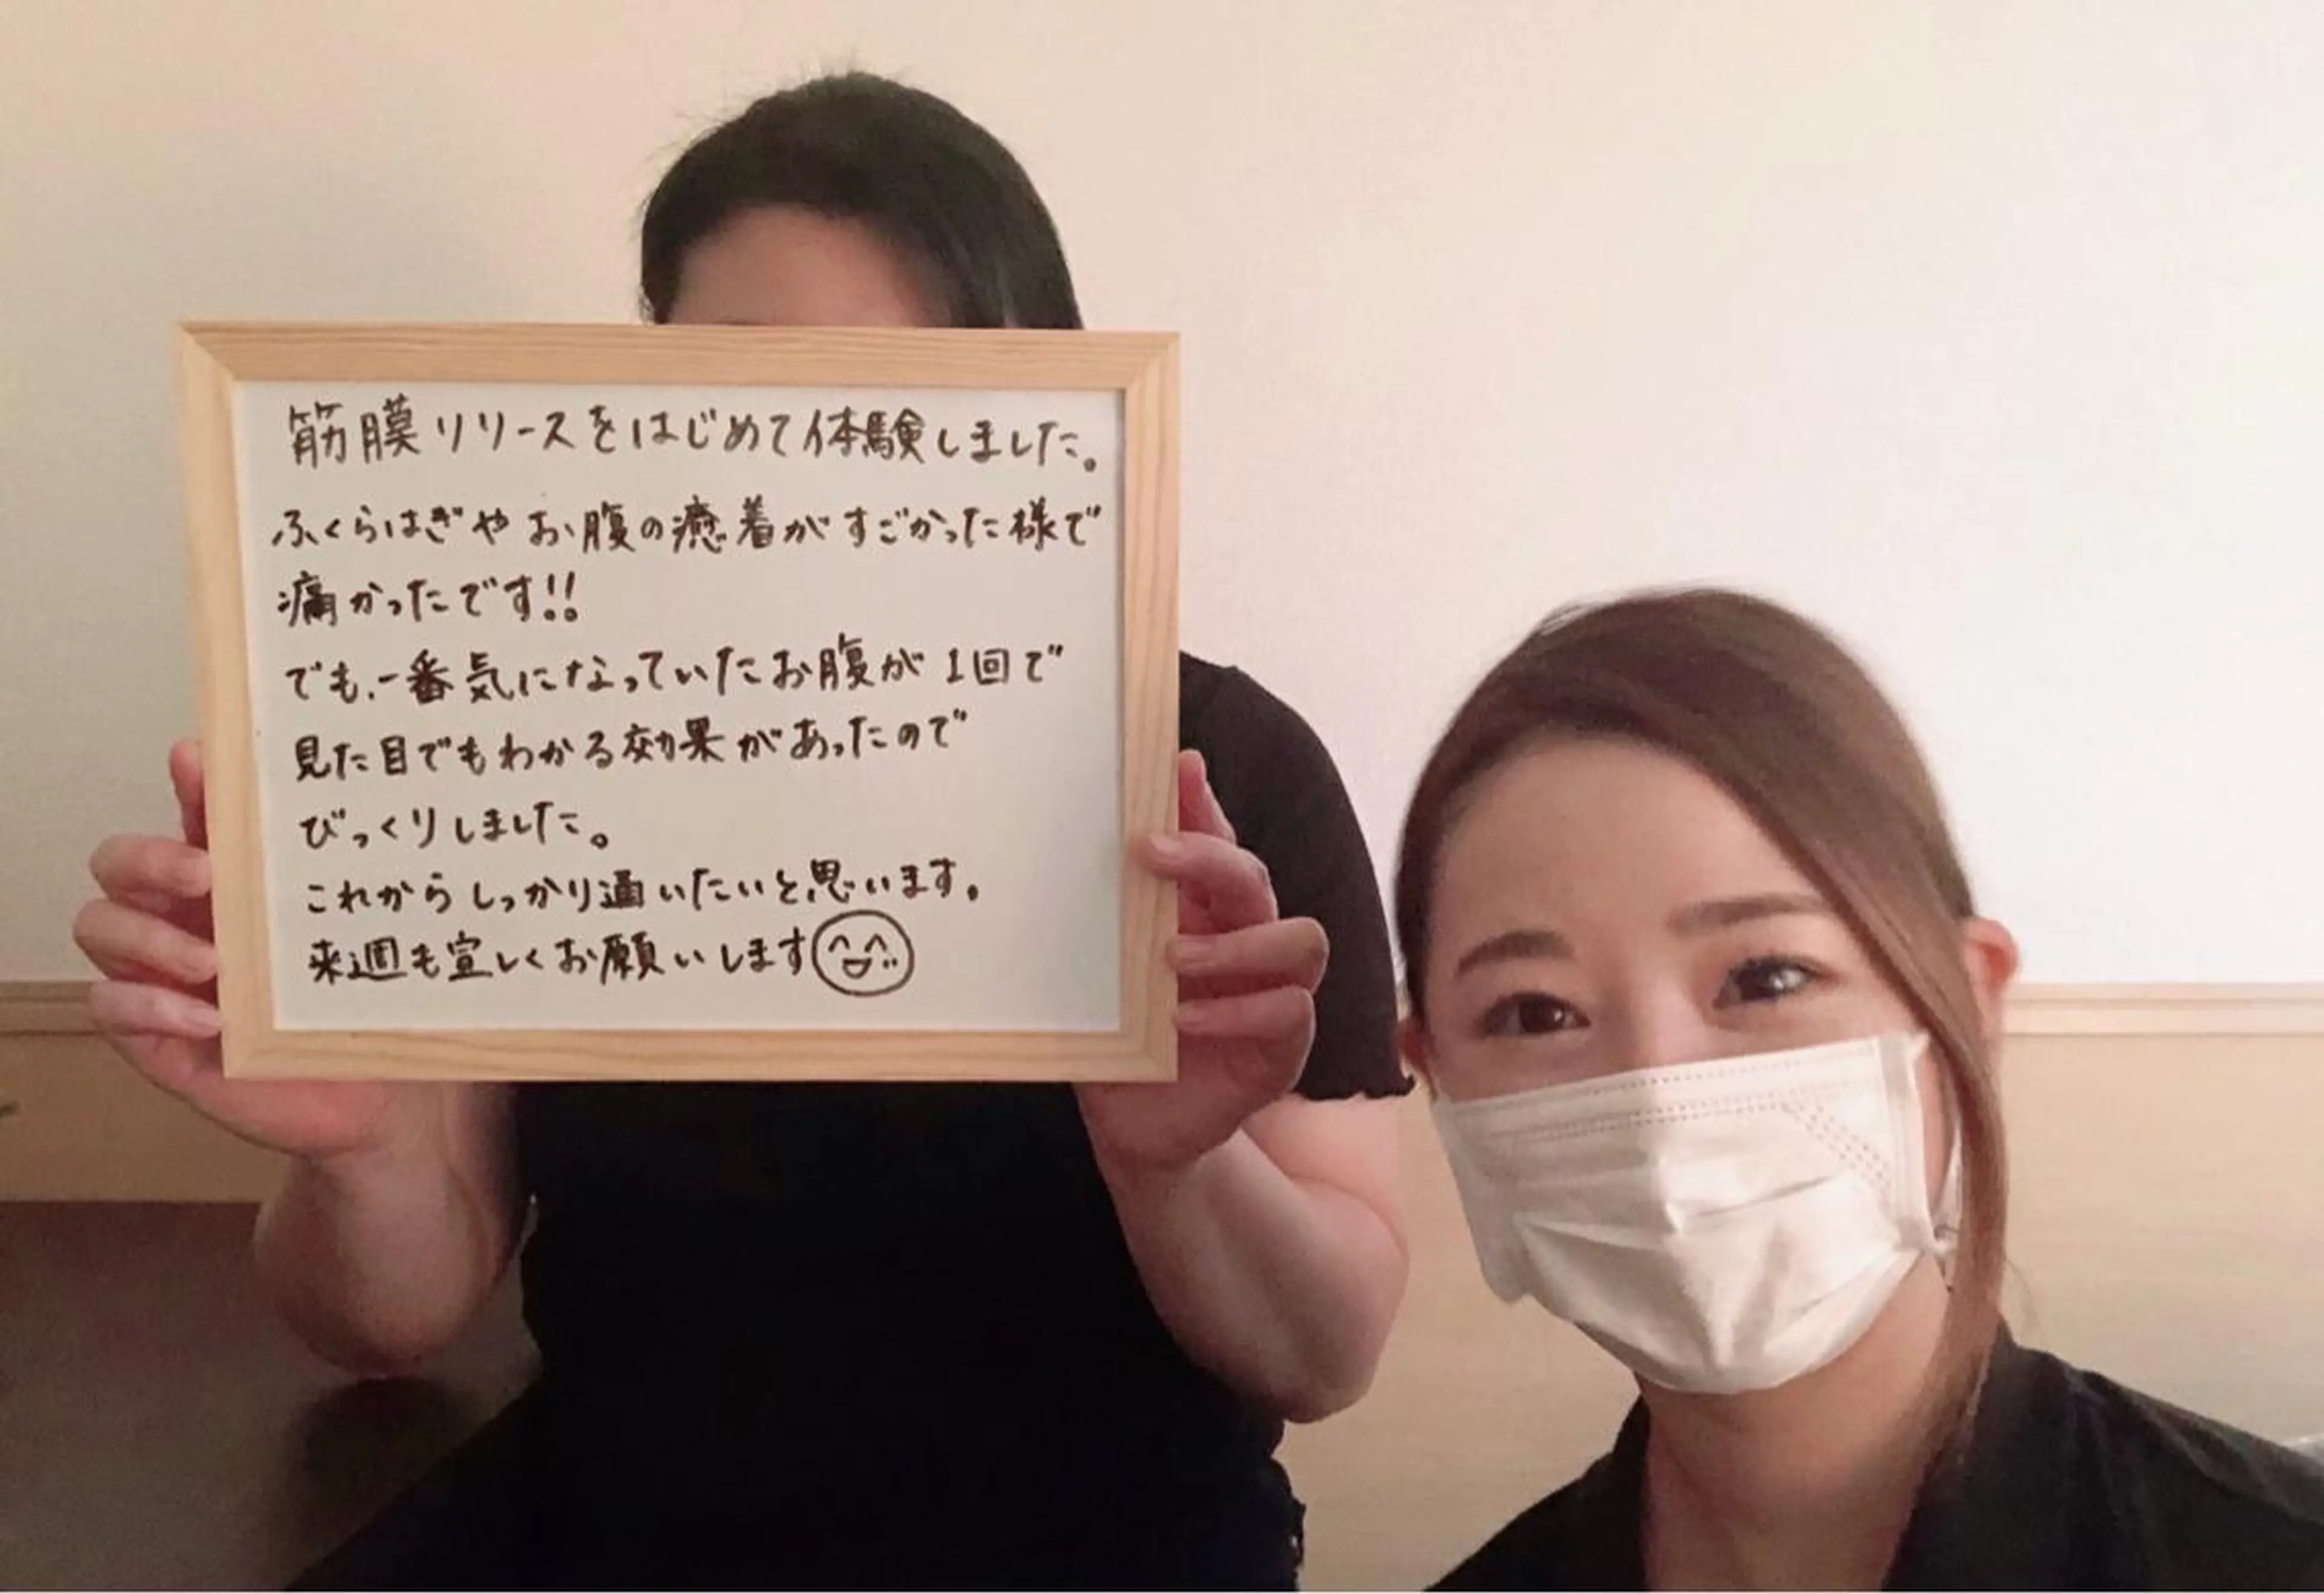 筋膜リリースをはじめて体験しました。
ふくらはぎやお腹の癒着がすごかった様で
痛かったです!!
でも、一番気になっていたお腹が1回で
見た目でもわかる効果があったので
びっくりしました。
これからしっかり通いたいと思います。
来週も宜しくお願いします